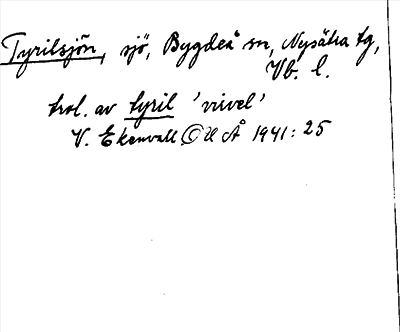 Tyrilsjön, sjö, Bygdeå sn, Nysätra tg,
Vb. l.
trol. av tyril 'virvel'
V. Ekenvall OUÅ 1941: 25